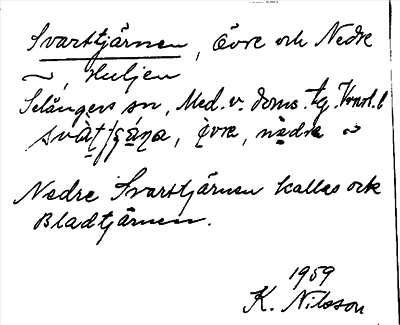 Svarttjärnen, Övre och Nedre
~, Huljen
Selångers sn, Med. v. doms. tg.
övre, nedre ~
Nedre Svarttjärnen kallas ock
Bladtjärnen.
1959
K. Nilsson